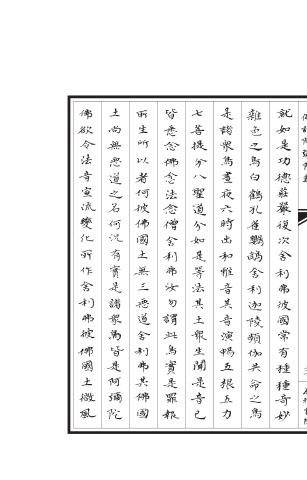 就如是功德莊嚴復次舍利弗彼國常有種種奇妙
雜色之鳥白鶴孔雀鸚鵡舍利迦陵頻伽共命之鳥
是諸衆鳥晝夜六時出和雅音其音演暢五根五力
七菩提分八聖道分如是等法其土衆生聞是音已
皆悉念佛念法念僧舍利弗汝勿謂此鳥實是罪報
所生所以者何彼佛國土無三惡道舍利弗其佛國
土尚無惡道之名何況有實是諸衆鳥皆是阿彌陀
佛欲令法音宣流變化所作舍利弗彼佛國土微風